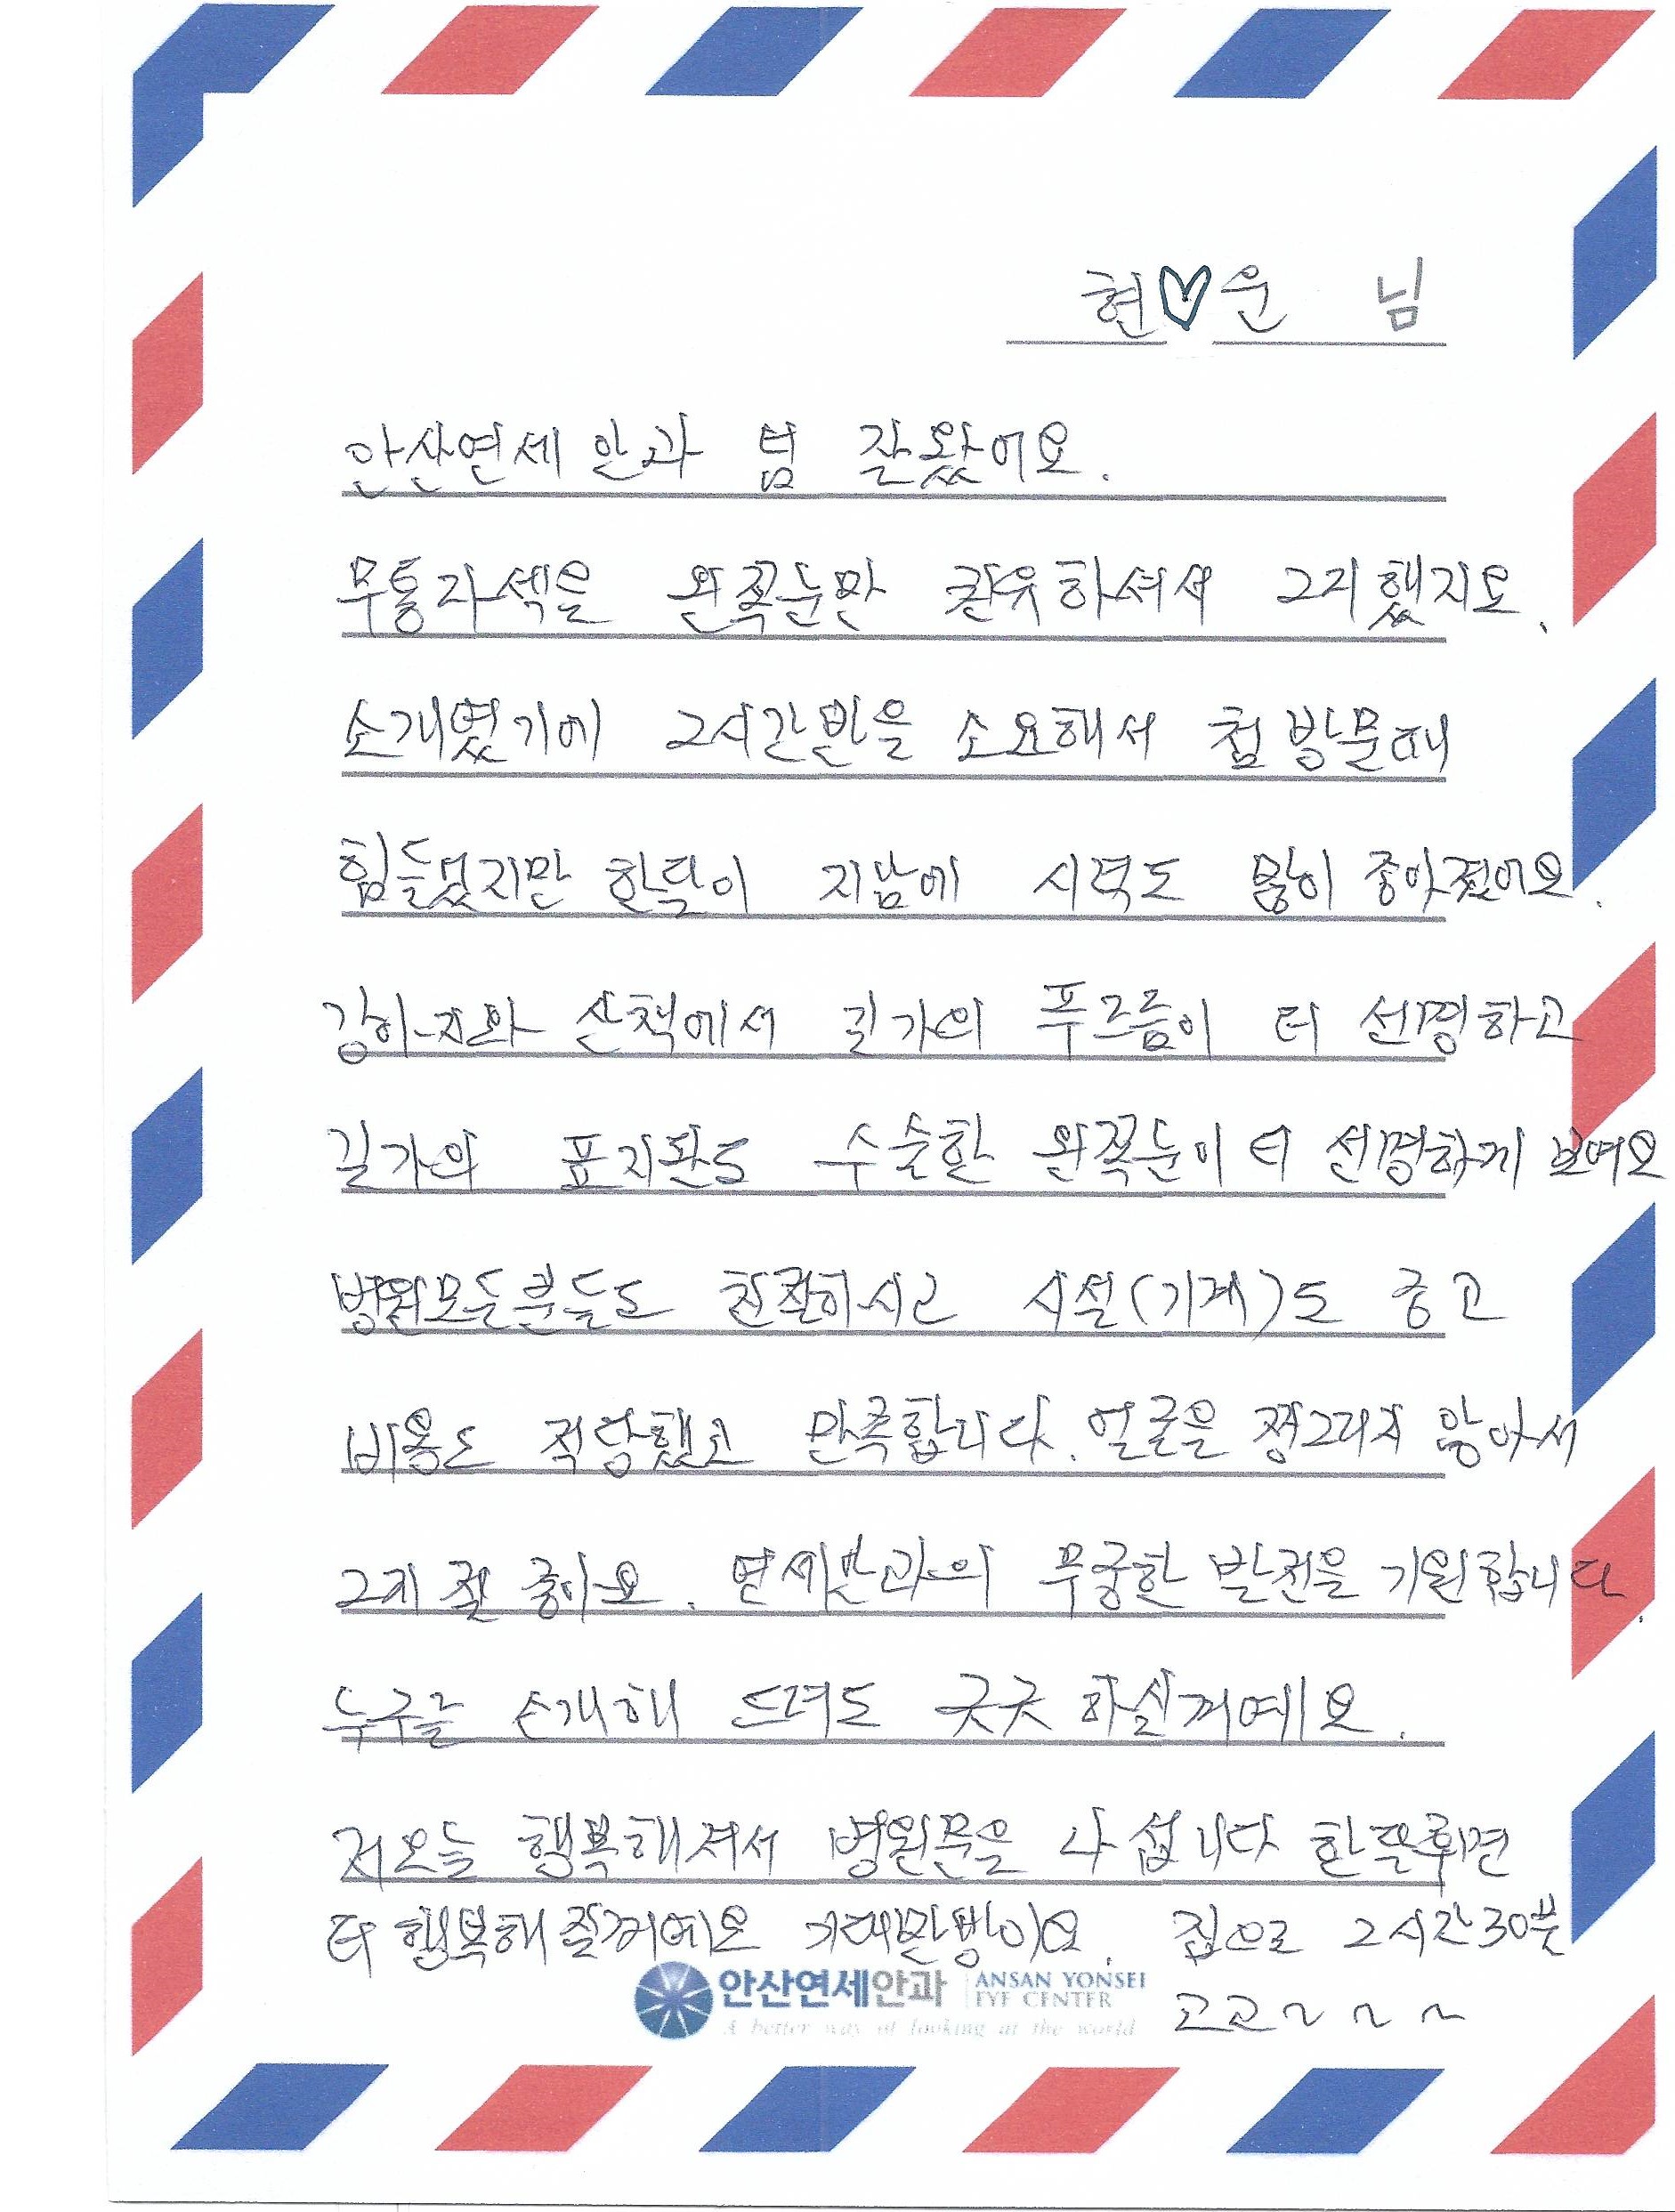 현♡운 님
안산연세안과 넘 잘왔어요.
무통라섹을 왼쪽눈만 권유하셔서 그리했지요.
소개였기에 2시간반을 소요해서 첨 방문때
힘들었지만 한달이 지남에 시력도 많이 좋아졌어요.
강아지와 산책에서 길가의 푸르름이 더 선명하고
길가의 표지판도 수술한 왼쪽눈이 더 선명하게 보여요
병원모든분들도 친절하시고 시설(기계)도 좋고
비용도 적당했고 만족합니다. 얼굴을 찡그리지 않아서
그게 젤 좋아요. 연세안과의 무궁한 발전을 기원합니다.
누구를 소개해 드려도 굿굿 하실꺼예요.
저오늘 행복해져서 병원문을 나섭니다 한달후면
더 행복해 질꺼예요 기대만방이요. 집으로 2시간30분
고고~ ~ ~
안산연세안과 ANSAN YONSEI EYE CENTER
A better way of looking at the world